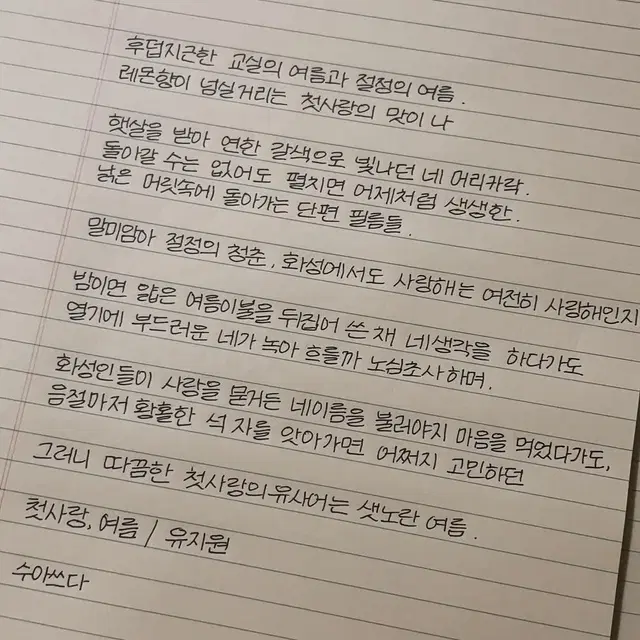 후덥지근한 교실의 여름과 절정의 여름.
레몬향이 넘실거리는 첫사랑의 맛이 나
햇살을 받아 연한 갈색으로 빛나던 네 머리카락.
돌아갈 수는 없어도 펼치면 어제처럼 생생한.
낡은 머릿속에 돌아가는 단편 필름들.
말미암아 절정의 청춘, 화성에서도 사랑해는 여전히 사랑해인지
밤이면 얇은 여름이불을 뒤집어 쓴 채 네생각을 하다가도
열기에 부드러운 네가 녹아 흐를까 노심초사하며.
화성인들이 사랑을 묻거든 네이름을 불러야지 마음을 먹었다가도,
음절마저 황홀한 석 자를 앗아가면 어쩌지 고민하던
그러니 따끔한 첫사랑의 유사어는 샛노란 여름.
첫사랑, 여름 / 유지원
수아쓰다